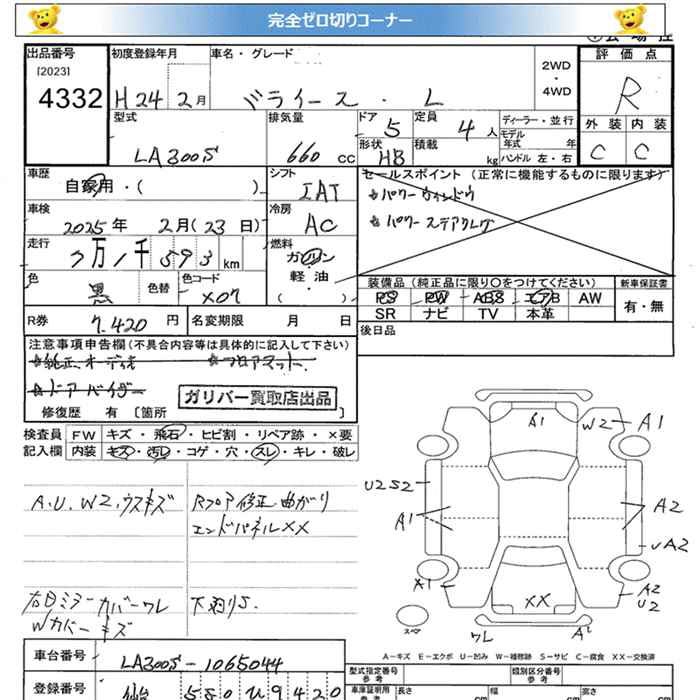 完全ゼロ切りコーナー
出品番号
[2023]
4332
初度登録年月
H24 2月
車名・グレード
ミライース・L
2WD
・
4WD
評価点
R
型式
LA300S
排気量
660 CC
ドア
5
定員
4 人
形状
HB
積載
kg
ディーラー・並行
モデル
年式 年
ハンドル 左・右
外装 内装
C C
車歴
自家用・( )
シフト
IAT
セールスポイント (正常に機能するものに限ります)
パワーウィンドウ
パワーステアリング
車検
2025年 2月(23日)
冷房
AC
走行
7万1千593km
燃料
ガソリン
・
軽油
( )
色
黒
色替
色コード
X07
装備品 (純正品に限り○をつけてください)
PS PW ABS エアB AW
SR ナビ TV 本革
新車保証書
有・無
R券
7.420 円
名変期限 月 日
後日品
注意事項申告欄 (不具合内容等は具体的に記入して下さい)
純正オーディオ フロアマット
ドアバイザー
ガリバー買取店出品
修復歴 有 [箇所 ]
検査員 FW キズ・飛石・ヒビ割・リペア跡・×要
記入欄 内装 キズ・汚レ・コゲ・穴・スレ・キレ・破レ
A.U.W2.ウスキズ
Rフロア修正曲がり
エンドパネルXX
右ミラーカバーワレ
Wカバーキズ
下廻りS.
A1
W2
A1
U2S2
A1
A2
A2
A1
A2
U2
XX
スペア
ワレ
A2
A-キズ E-エクボ U-凹み W-補修跡 S-サビ C-腐食 XX-交換済
車台番号
LA300S-1065044
登録番号
仙台 580 ひ 9420
型式指定番号
参考
類別区分番号
参考
車庫証明用
参考
長さ cm
幅 cm
高さ cm